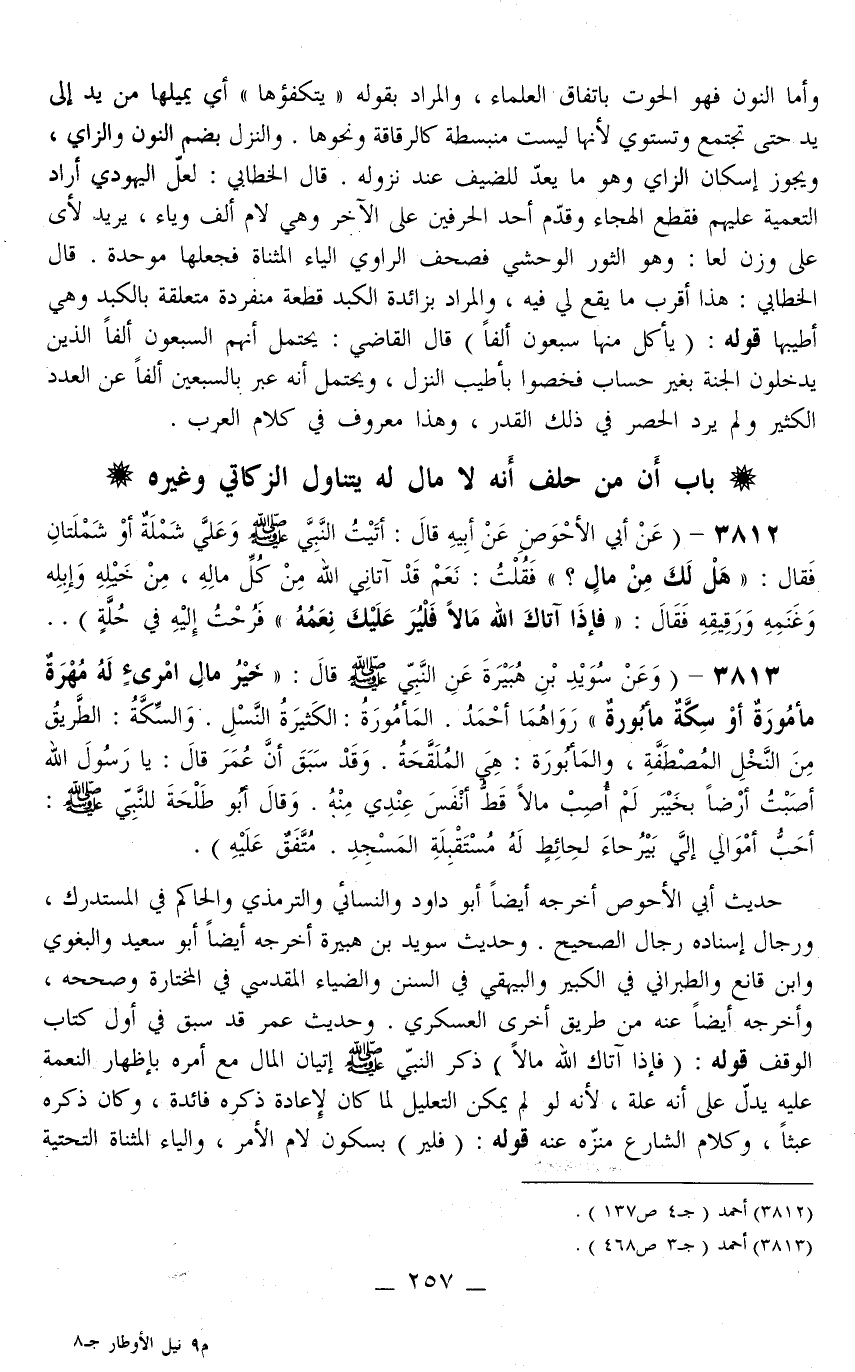 وأما النون فهو الحوت باتفاق العلماء ، والمراد بقوله « يتكفؤها » أي يميلها من يد إلى
يد حتى تجتمع وتستوي لأنها ليست منبسطة كالرقاقة ونحوها . والنزل بضم النون والزاي ،
ويجوز إسكان الزاي وهو ما يعدّ للضيف عند نزوله . قال الخطابي : لعلّ اليهودي أراد
التعمية عليهم فقطع الهجاء وقدّم أحد الحرفين على الآخر وهي لام ألف وياء ، يريد لأى
على وزن لعا : وهو الثور الوحشي فصحف الراوي الياء المثناة فجعلها موحدة . قال
الخطابي : هذا أقرب ما يقع لي فيه ، والمراد بزائدة الكبد قطعة منفردة متعلقة بالكبد وهي
أطيبها قوله : ( يأكل منها سبعون ألفاً ) قال القاضي : يحتمل أنهم السبعون ألفاً الذين
يدخلون الجنة بغير حساب فخصوا بأطيب النزل ، ويحتمل أنه عبر بالسبعين ألفاً عن العدد
الكثير ولم يرد الحصر في ذلك القدر ، وهذا معروف في كلام العرب .
باب أن من حلف أنه لا مال له يتناول الزكاتي وغيره
٣٨١٢ – ( عَنْ أبي الأحْوَصِ عَنْ أبِيهِ قالَ : أتَيْتُ النَّبِيَّ ﷺ وَعَليَّ شَمْلَةٌ أوْ شَمْلَتانِ
فَقال : « هَلْ لَكَ مِنْ مالٍ ؟ » فَقُلْتُ : نَعَمْ قَدْ آتانِي الله مِنْ كُلِّ مالِهِ ، مِنْ خَيْلِهِ وَإبِلِه
وَغَنَمِهِ وَرَقِيقِهِ فَقَالَ : « فإذَا آتاكَ الله مَالاً فَلْيُرَ عَلَيْكَ نِعَمُهُ » فَرُحْتُ إلَيْهِ في حُلَّةٍ ) ..
٣٨١٣ – ( وَعَنْ سُوَيْدِ بْنِ هُبَيْرَةَ عَنِ النَّبِيّ ﷺ قالَ : « خَيْرُ مالِ امْرىءٍ لَهُ مُهْرَةٌ
مأمُورَةٌ أوْ سِكَّةٌ مأبُورةٌ » رَوَاهُمَا أحْمَدُ . المَأمُورَةُ : الكَثِيرَةُ النَّسْلِ . وَالسِّكَّةُ : الطَّرِيقُ
مِنَ النَّخْلِ المُصْطَفَّةِ ، والمَأبُورَة : هِيَ المُلَقَّحَةُ . وَقَدْ سَبَقَ أنَّ عُمَرَ قالَ : يا رَسُولَ الله
أصَبْتُ أرْضاً بخَيْبَر لَمْ أُصِبْ مالاً قَطُّ أنْفَسَ عِنْدِي مِنْهُ . وَقالَ أبُو طَلْحَةَ للنَّبِيّ ﷺ :
أحَبُّ أمْوَالي إليَّ بَيْرُحاءَ لحائِطٍ لَهُ مُسْتَقْبِلَةِ المَسْجِدِ . مُتَّفَقٌ عَلَيْهِ ) .
حديث أبي الأحوص أخرجه أيضاً أبو داود والنسائي والترمذي والحاكم في المستدرك ،
ورجال إسناده رجال الصحيح . وحديث سويد بن هبيرة أخرجه أيضاً أبو سعيد والبغوي
وابن قانع والطبراني في الكبير والبيهقي في السنن والضياء المقدسي في المختارة وصححه ،
وأخرجه أيضاً عنه من طريق أخرى العسكري . وحديث عمر قد سبق في أول كتاب
الوقف قوله : ( فإذا آتاك الله مالاً ) ذكر النبيّ ﷺ إتيان المال مع أمره بإظهار النعمة
عليه يدلّ على أنه علة ، لأنه لو لم يمكن التعليل لما كان لإعادة ذكره فائدة ، وكان ذكره
عبثاً ، وكلام الشارع منزّه عنه قوله : ( فلير ) بسكون لام الأمر ، والياء المثناة التحتية
(٣٨١٢) أحمد ( جـ٤ ص١٣٧ ) .
(٣٨١٣) أحمد ( جـ٣ ص٤٦٨ ) .
– ٢٥٧ –
م٩ نيل الأوطار جـ٨